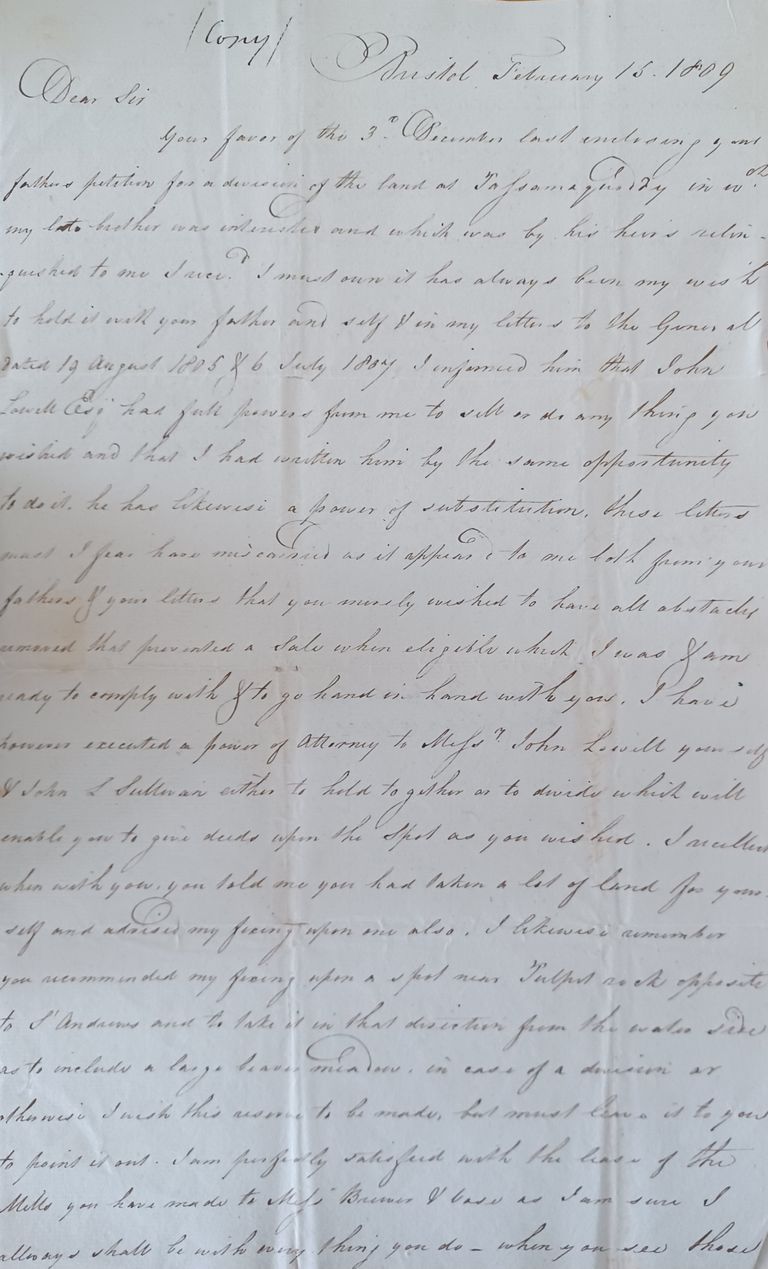 /Copy/
Bristol February 15. 1809
Dear Sir
Your favor of the 3.d December last enclosing your
fathers petition for a division of the land at Passamaquoddy in wch.
my late brother was interested and which was by his heirs relin-
quished to me I rece.d I must own it has always been my wish
to hold it with your father and self & in my letters to the General
dated 19 August 1805, & 6 July 1807 I informed him that John
Lowell Esqr had full powers from me to sell or do any thing you
wished and that I had written him by the same opportunity
to do it. he has likewise a power of substitution. these letters
must I fear have miscarried as it appeared to me both from your
fathers & your letters that you merely wished to have all obstacles
removed that prevented a Sale when eligible which I was & am
ready to comply with & to go hand in hand with you. I have
however executed a power of Attorney to Messrs John Lowell yourself
& John L Sullivan either to hold together or to divide which will
enable you to give deeds upon the Spot as you wished. I recollect
when with you, you told me you had taken a lot of land for your-
self and advised my fixing upon one also. I likewise remember
you recommended my fixing upon a spot near Pulpit rock opposite
to St Andrews and to take it in that direction from the water side
as to include a large beaver meadow. in case of a division or
otherwise I wish this reserve to be made, but must leave it to you
to point it out. I am perfectly satisfied with the lease of the
Mills you have made to Messrs Brewer & as I am sure I
allways shall be with every thing you do - when you see those